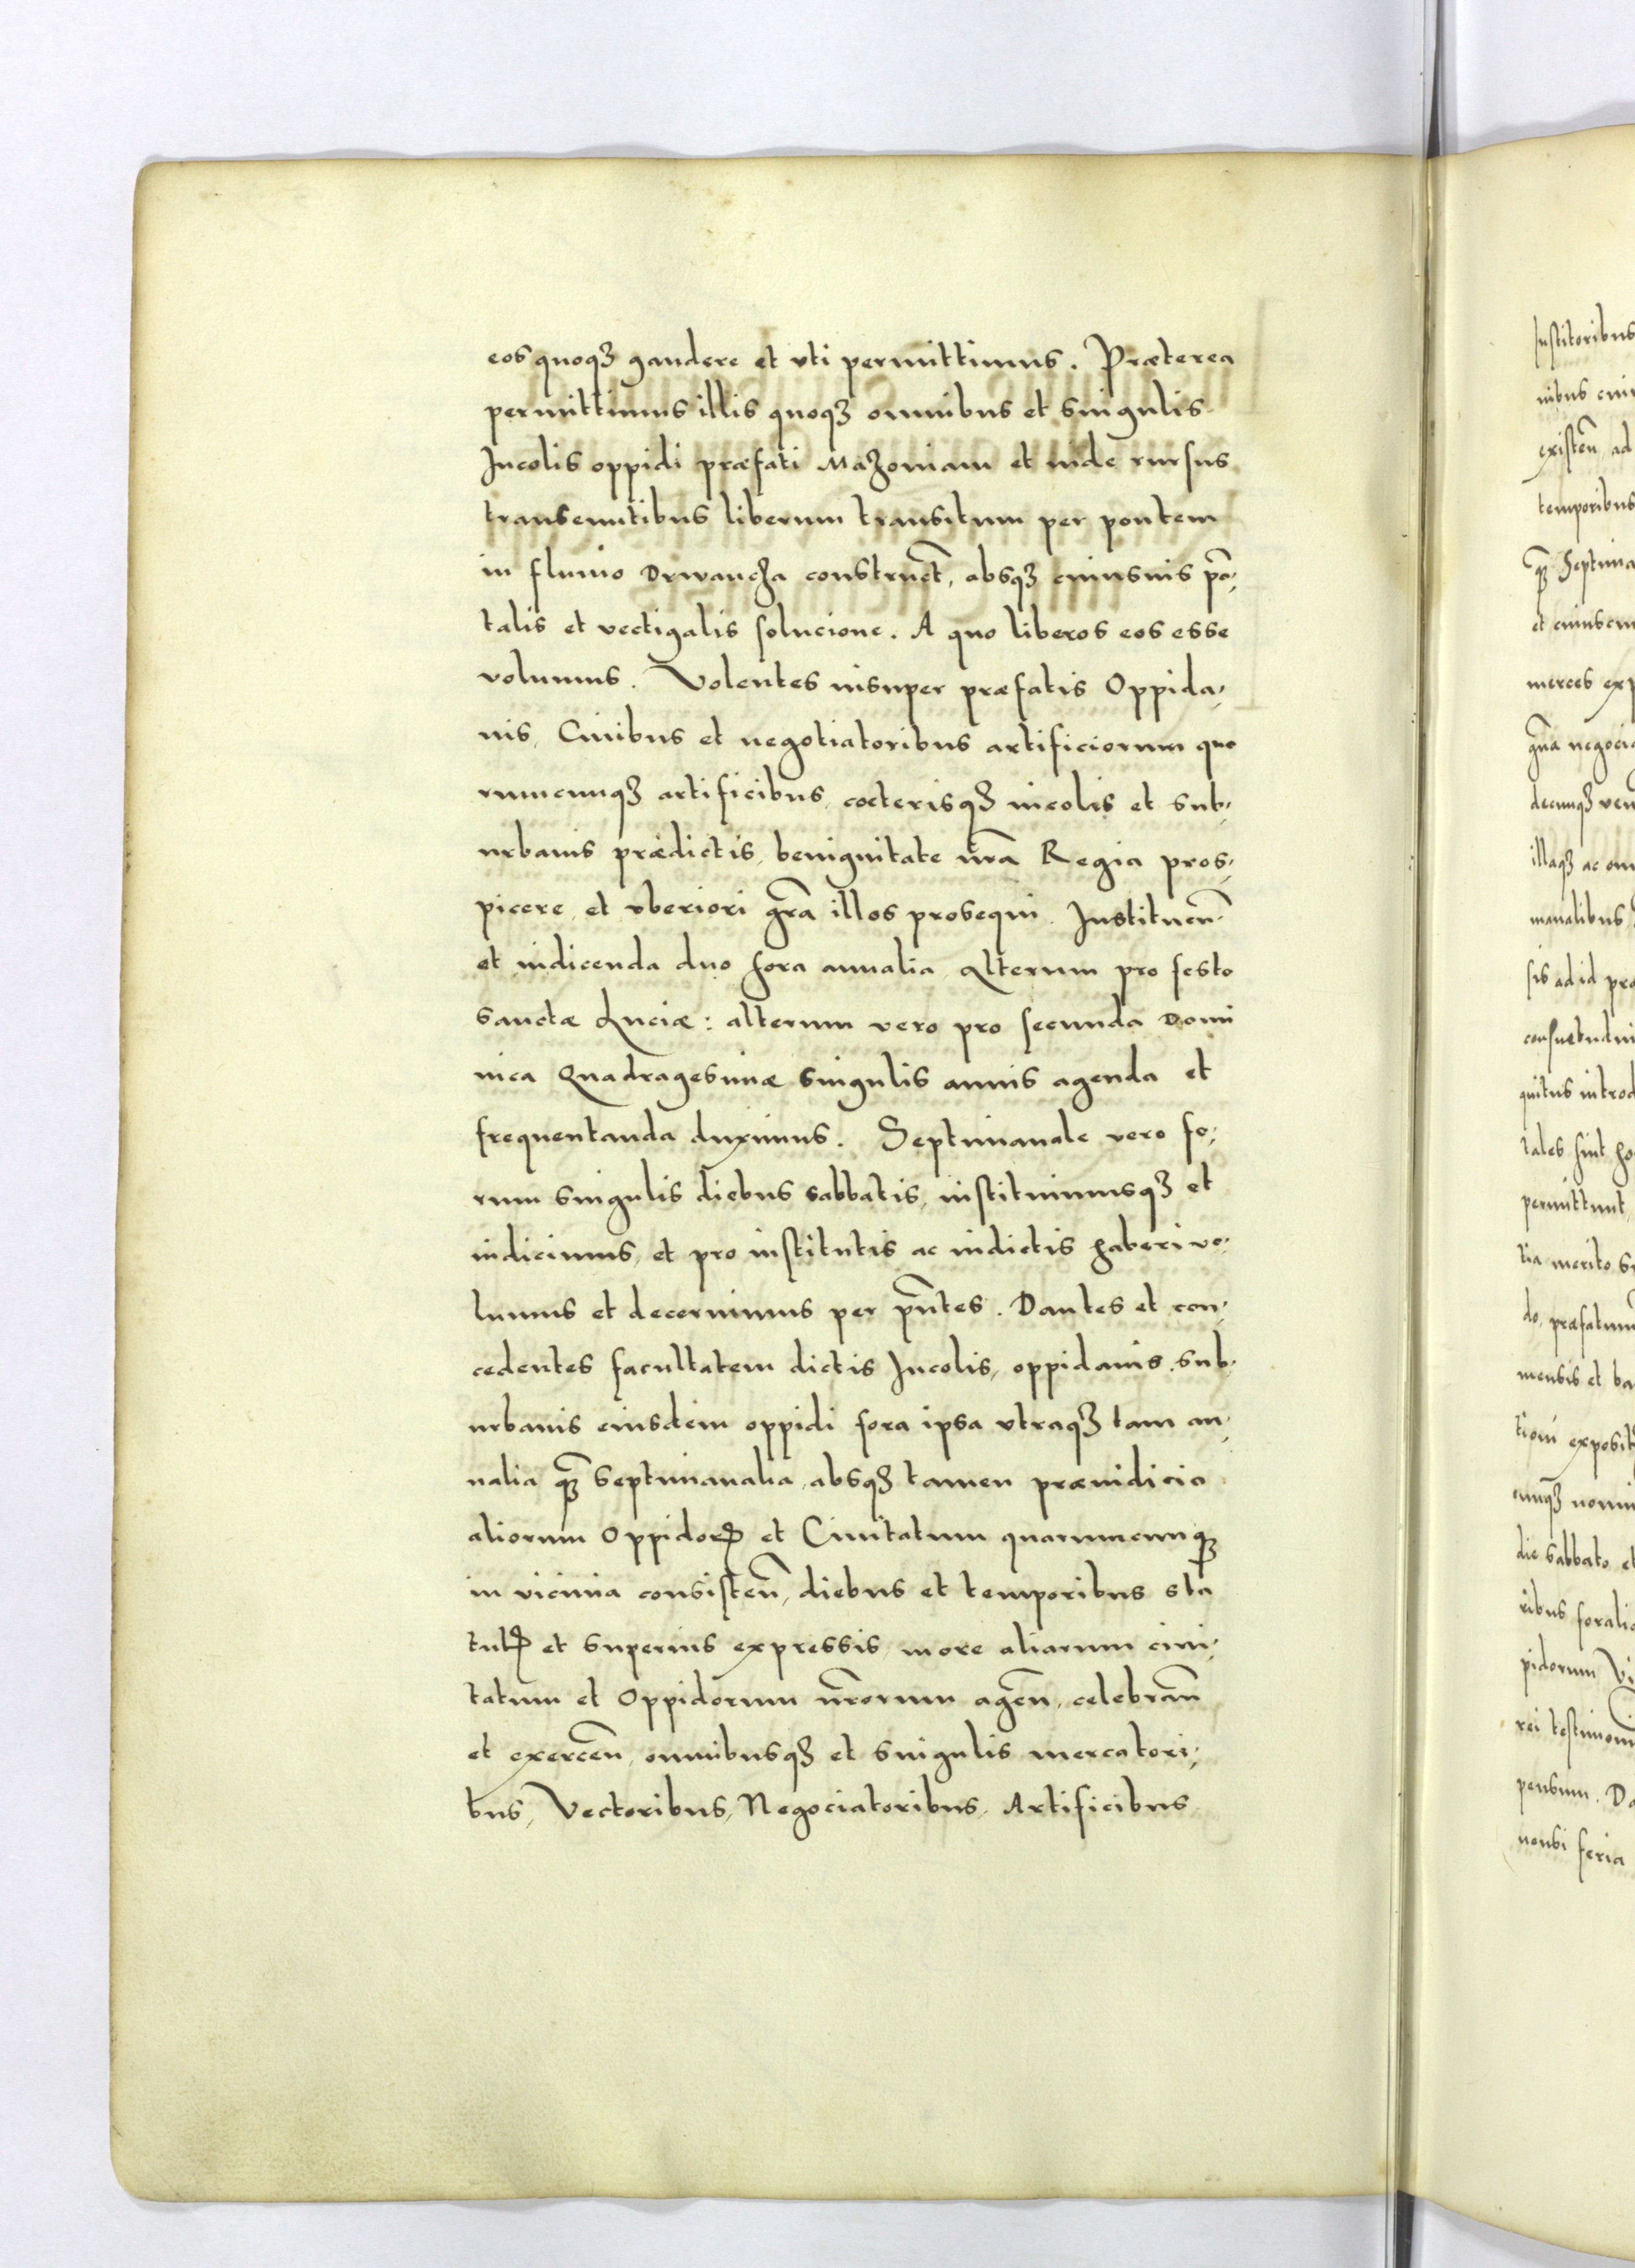 eos quoqꝫ gaudere et vti permittimus. Præterea
permittimus illis quoqꝫ omnibus et singulis
Incolis oppidi præfati Mazoniam et inde rursus
transeuntibus liberum transitum per pontem
in fluuio Drwancza construct̄, absqꝫ cuiusuis pō⸗
talis et vectigalis solucione. A quo liberos eos esse
volumus. Volentes insuper præfatis Oppida⸗
nis, Ciuibus et negotiatoribus artificiorum quo
rumcunqꝫ artificibus, cœterisqꝫ incolis et sub⸗
urbanis prædictis, benignitate nr̄a Regia pros⸗
picere, et vberiori gr̄a illos prosequi. Instituen̄
et indicenda duo fora annalia alterum pro festo
sanctæ Luciæ: alterum vero pro secunda Domi
nica Quadragesimæ singulis annis agenda et
frequentanda duximus. Septimanale vero fo⸗
rum singulis diebus sabbatis, instituimusqꝫ et
indicimus, et pro institutis ac indictis haberi vo⸗
lumus et decernimus per pn̄tes. Dantes et con⸗
cedentes facultatem dictis Incolis, oppidanis, sub⸗
urbanis eiusdem oppidi fora ipsa vtraqꝫ tam an⸗
nalia qꝫ̄ septimanalia, absqꝫ tamen præiudicio
aliorum Oppidoꝝ et Ciuitatum quarumcunqꝫ
in vicinia consisten̄, diebus et temporibus sta
tutꝭ et superius expressis, more aliarum ciui⸗
tatum et Oppidorum nr̄orum agen̄, celebran̄
et exercen̄, omnibusqꝫ et singulis mercatori⸗
bus, Vectoribus, Negociatoribus, Artificibus
Institoribus
existen̄, ad
temporibus
qꝫ̄ Septima
merces exp
illaqꝫ ac om
manalibus
sis ad id pra
consuetudni
quitus introd
tales sint
permittunt,
tia merito
do, præfatum
mensis et ba
die sabbato et
ribus foralia
pidorum
rei testimoni
pensum. Da
feria